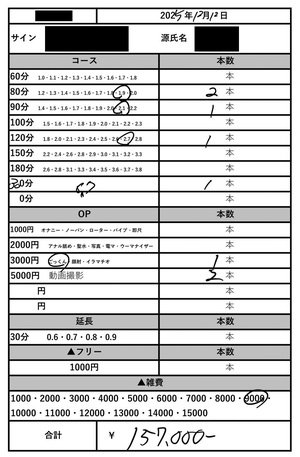 2025年12月12日
サイン 源氏名
コース 本数
60分 1.0・1.1・1.2・1.3・1.4・1.5・1.6・1.7・1.8 本
80分 1.2・1.3・1.4・1.5・1.6・1.7・1.8・1.9・2.0 2本
90分 1.4・1.5・1.6・1.7・1.8・1.9・2.0・2.1・2.2 1本
100分 1.5・1.6・1.7・1.8・1.9・2.0・2.1・2.2・2.3 本
120分 1.8・2.0・2.1・2.3・2.4・2.5・2.6・2.7・2.8 1本
150分 2.2・2.4・2.6・2.8・2.9・3.0・3.1・3.2・3.3 本
180分 2.6・2.8・3.1・3.3・3.4・3.5・3.6・3.7・3.8 本
30分 0.7 1本
0分 本
OP 本数
1000円 オナニー・ノーパン・ローター・バイブ・即尺 本
2000円 アナル舐め・聖水・写真・電マ・ウーマナイザー 本
3000円 ごっくん・顔射・イラマチオ 1本
5000円 動画撮影 2本
円 本
円 本
延長 本数
30分 0.6・0.7・0.8・0.9 本
▲フリー 本数
1000円 本
▲雑費
1000・2000・3000・4000・5000・6000・7000・8000・9000・
10000・11000・12000・13000・14000・15000
合計 ¥ 157,000-